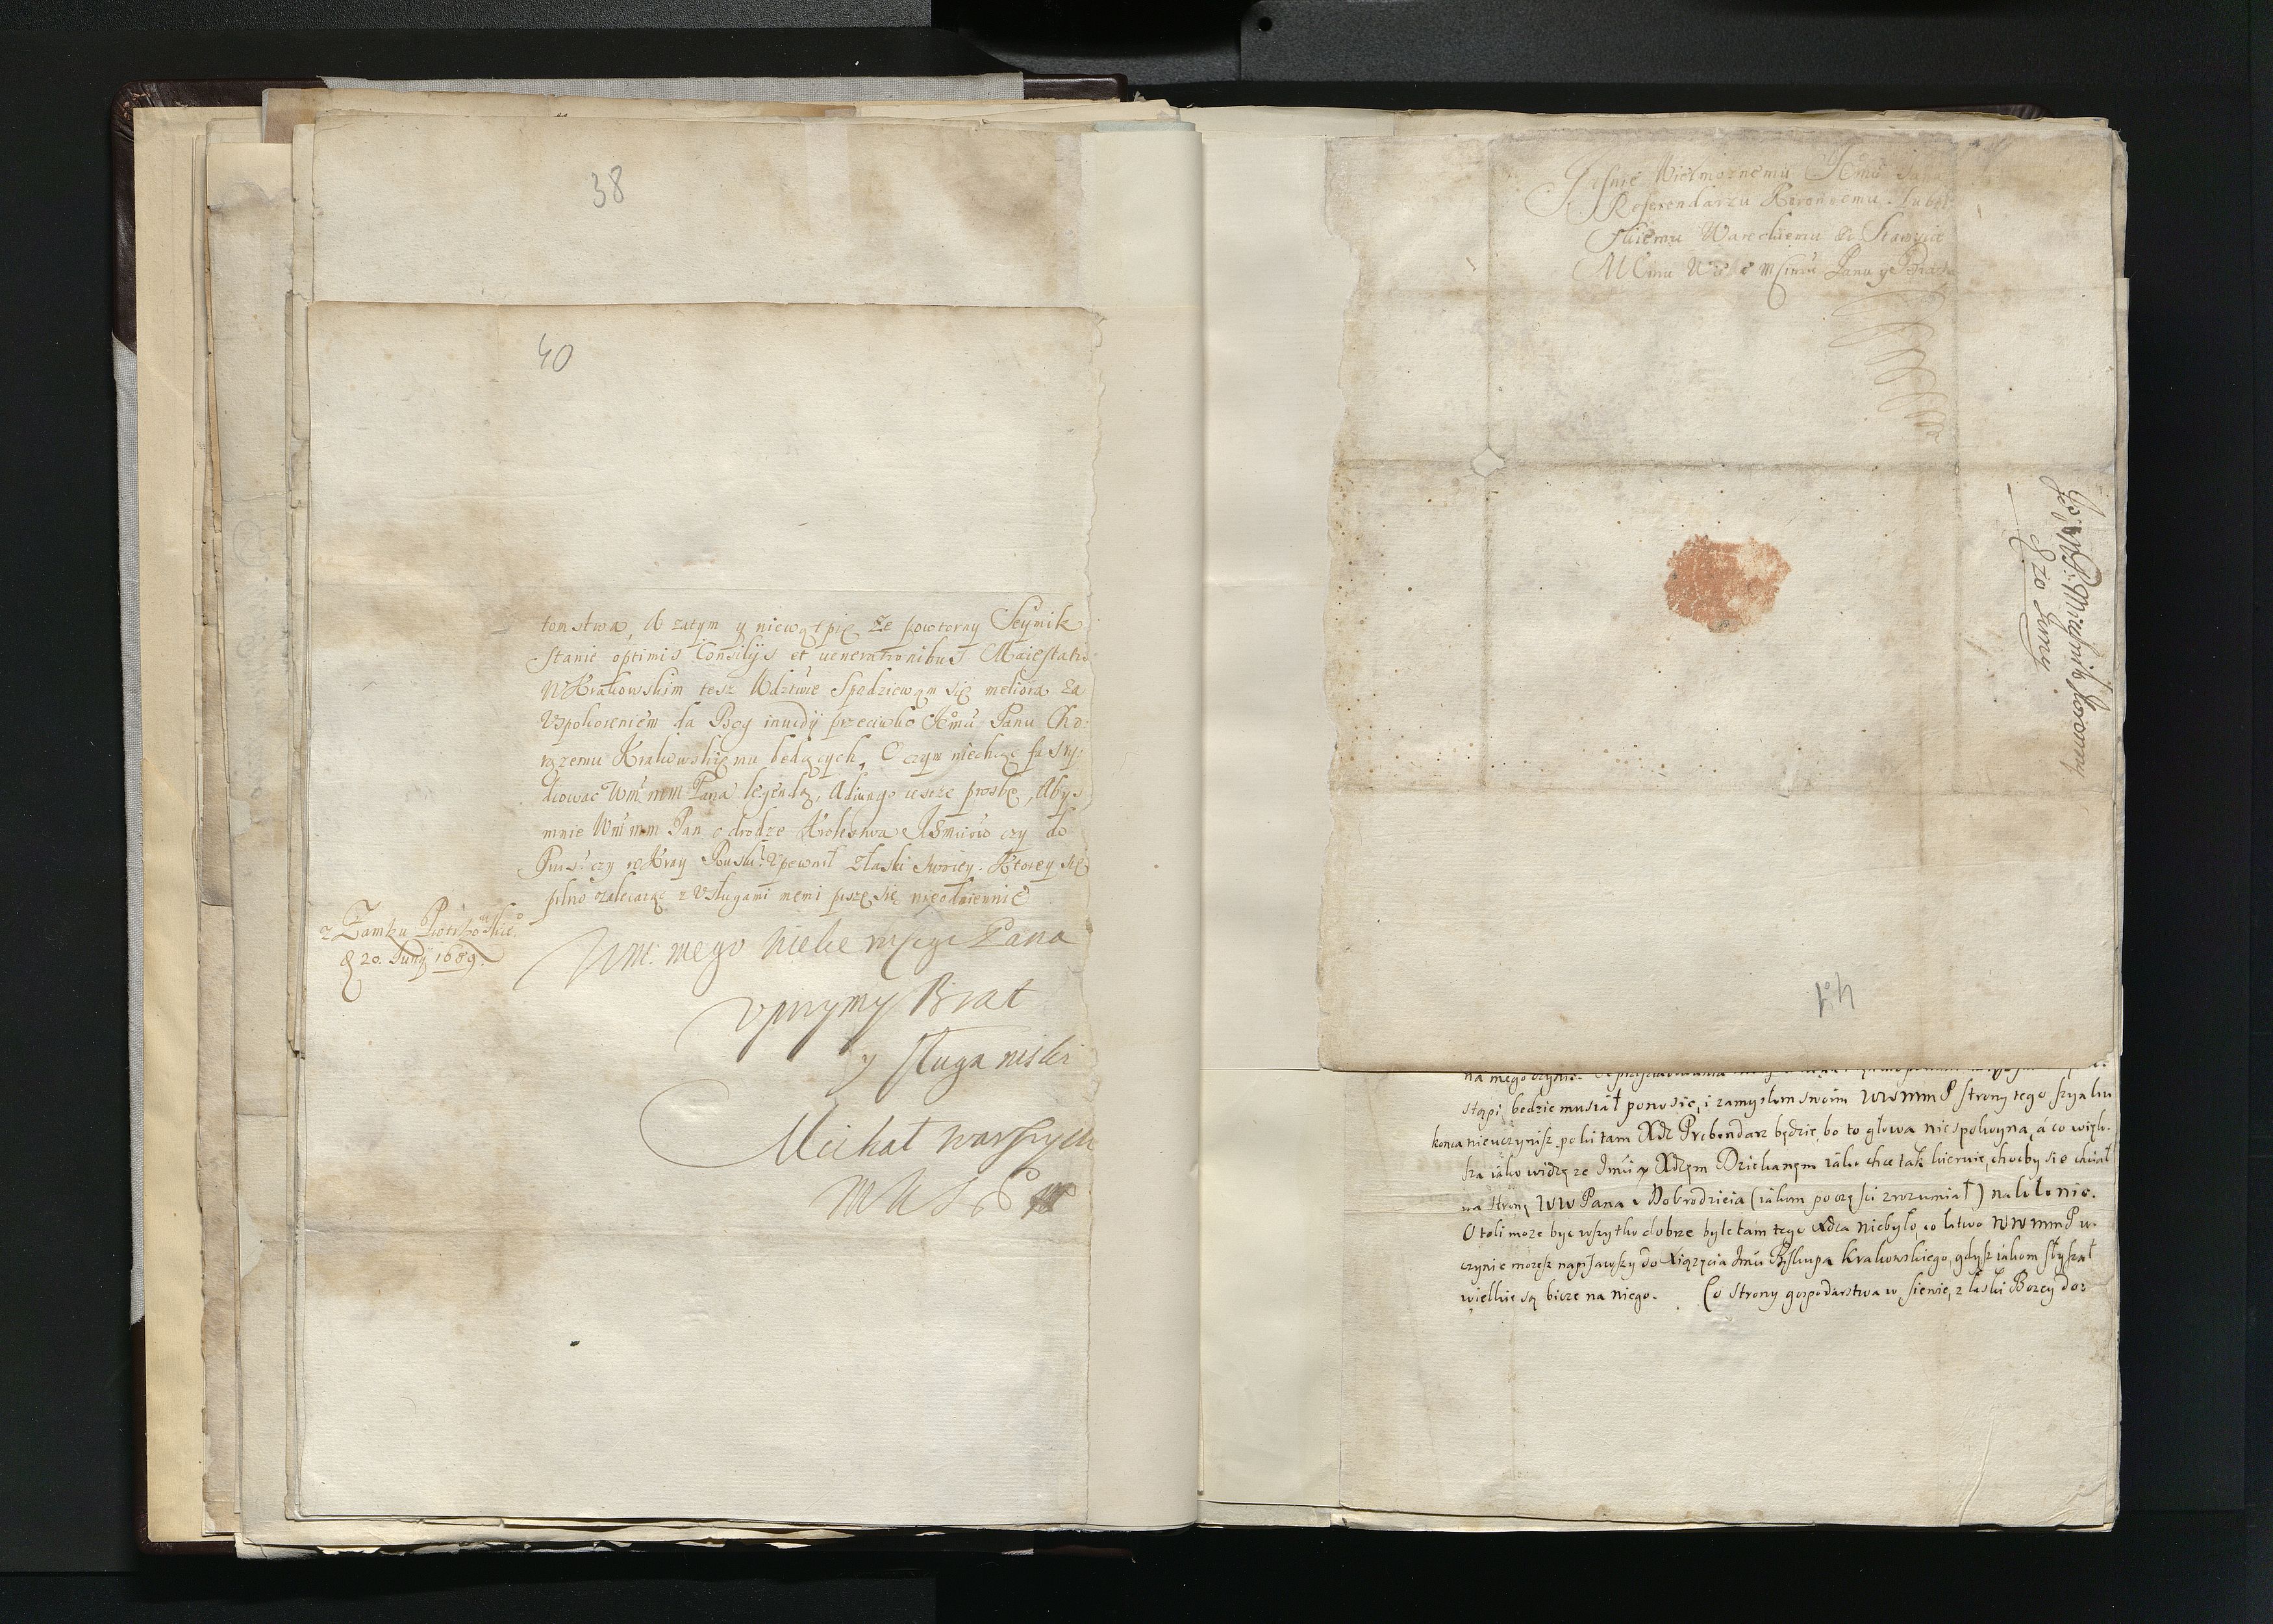 38
40
tomstwa, A zatym y niewątpię że powtorny Seymik
stanie optimis Consilijs et venerationibus Maiestatis
W Krakowskim tesz Wdztwie Spodziewam się meliora za
Vspokoieniem da Bog inuidij przeciwko Jemu Panu Cho-
rązemu Krakowskiemu będących, O czym niechcąc fasty-
diowac Wm mm Pana legendą, Adiungo iescze prosbę, Abys
mnie Wm mm Pan o drodze Krolestwa Ichmciow czy do
Prus czy w Kray Ruski Vpewnił z łaski swoiey. Ktorey się
pilno zalecaiąc z Vsługami memi piszę się nieodmiennie
z Zamku Piotrko
d 20. Junij 1689.
Wm. mego Pana
Vprzymy Brat
y sługa niski
Michał warszyck
M K S P
Jasnie Wielmoznemu Jemu Panu
Referendarzu Koronnemu
Wareckiemu Staroscie
Panu y Bratu
Miecznik Koronny
20 Juny
41
stąpi będzie musiał ponosic, i zamysłom swoim WWmmP strony tego szyaku
konca nieuczynisz poki tam Xdz Prebendarz będzie, bo to głowa niespokoyna, á co więk-
sza iáko widzę ze Imci Xdzem Dziekanem iáko chce tak kieruie, chocby się chciał
na stronę WW Pana i Dobrodzieia (iákom poczęsci zrozumiał) nakłonic.
O toli moze byc wszytko dobrze byle tam tego Xdza niebyło, co łatwo WWmmP u-
czynic mozesz napisawszy do Xiązęcia Imci Biskupa Krakowskiego, gdysz iákom słyszał
wielkie są bicze na niego. Co strony gospodarstwa w Sienie, z łaski Bozey do-